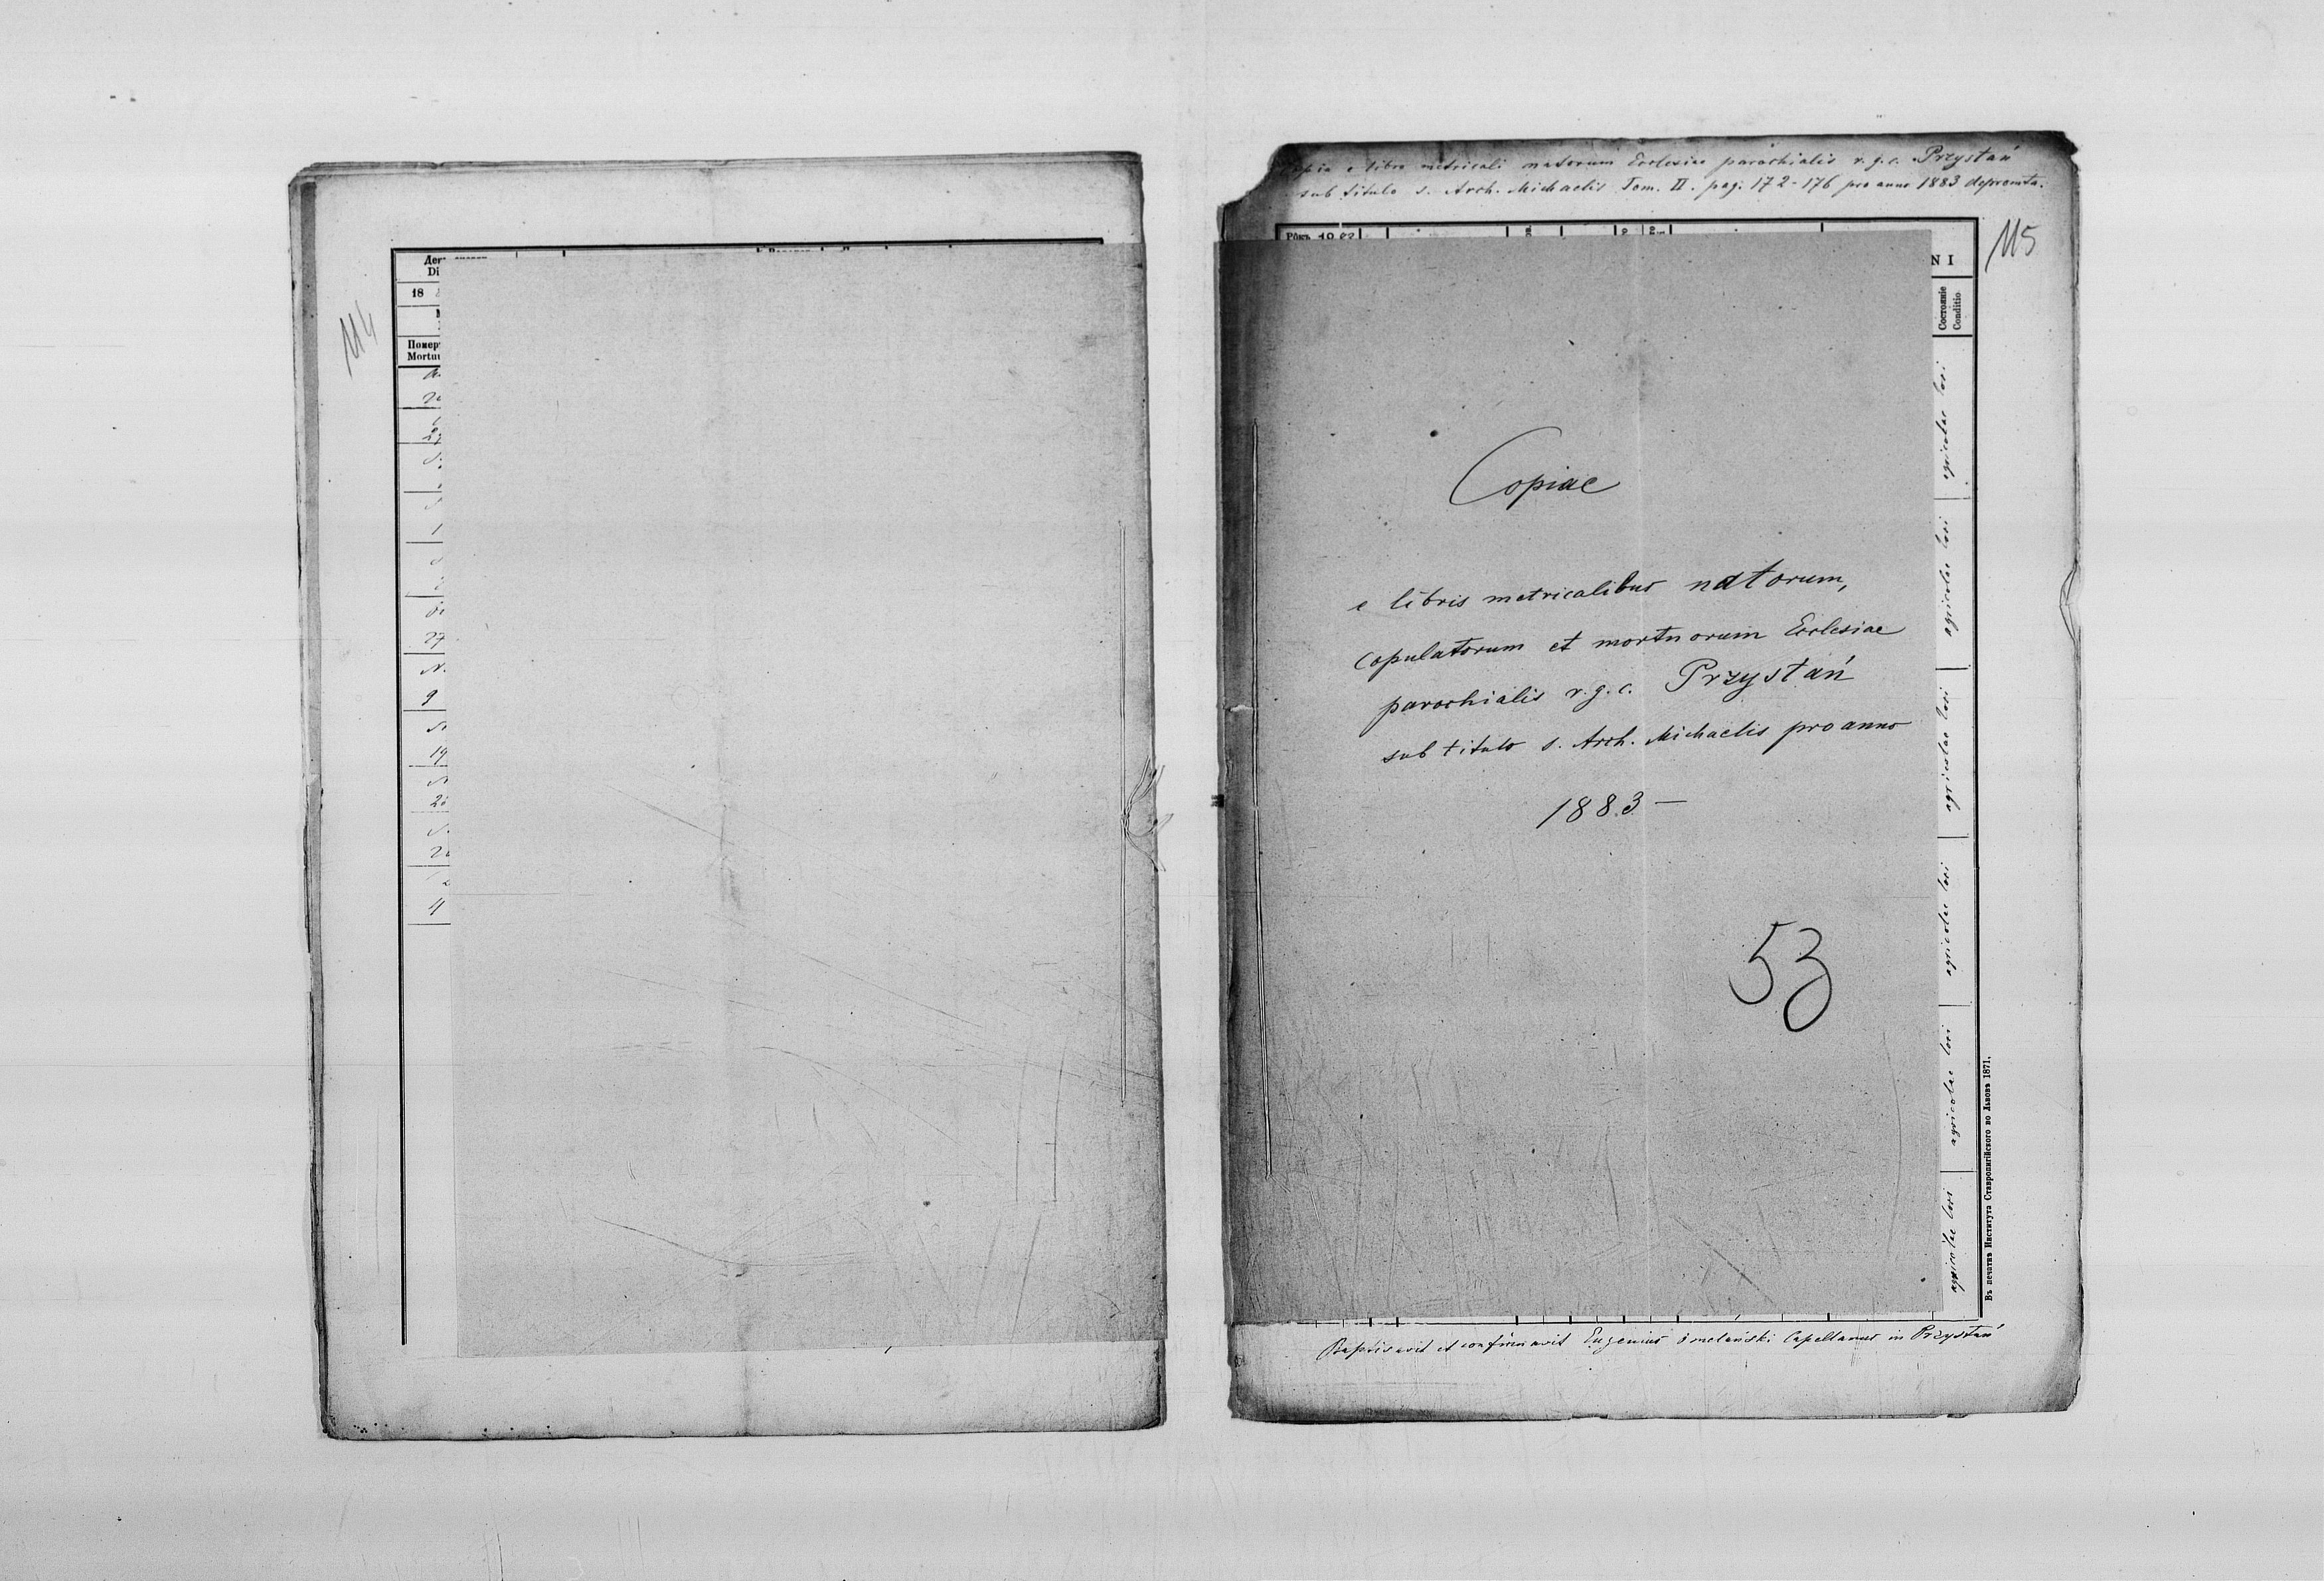 114
18
Mortu
27
9
19
Copia e libro metricali natorum Ecclesiae parochialis r. g. c. Przystań
sub titulo s. Arch. Michaelis Tom. II. pag. 172-176 pro anno 1883 depromta.
115
N I
Состояніе
Conditio
Copiae
e libris metricalibus natorum,
Copulatorum et mortuorum Ecclesiae
parochialis r. g. c. Przystań
sub titulo s. Arch. Michaelis pro anno
1883 —
53
agricolae loci
agricolae loci
agricolae loci
agricolae loci
agricolae loci
agricolae loci
Въ печатнѣ Института Ставропигійского во Львовѣ 1871.
Baptisavit et confirmavit Eugenius Omelański Capellanus in Przystań